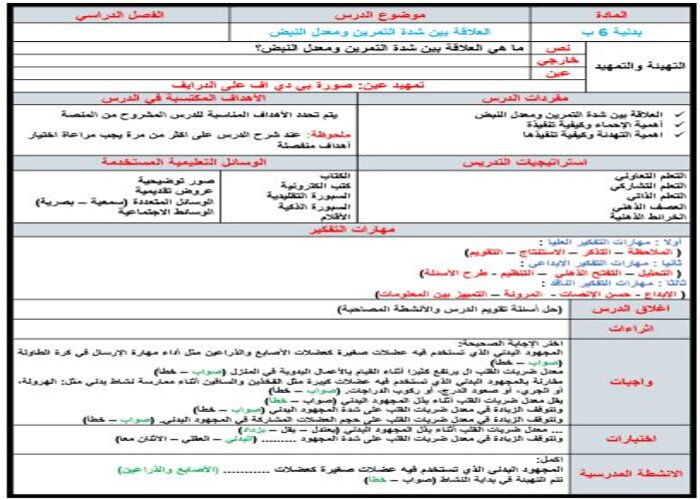 المادة موضوع الدرس الفصل الدراسي
بدنية 6 ب العلاقة بين شدة التمرين ومعدل النبض
التهيئة والتمهيد
نص ما هي العلاقة بين شدة التمرين ومعدل النبض؟
خارجي
عين
تمهيد عين: صورة بي دي اف على الدرايف
مفردات الدرس الأهداف المكتسبة في الدرس
✓ العلاقة بين شدة التمرين ومعدل النبض
✓ أهمية الإحماء وكيفية تنفيذة
✓ اهمية التهدئة وكيفية تنفيذها
يتم تحدد الأهداف المناسبة للدرس المشروح من المنصة
ملحوظة: عند شرح الدرس على اكثر من مرة يجب مراعاة اختيار
أهداف منفصلة
استراتيجيات التدريس الوسائل التعليمية المستخدمة
التعلم التعاوني
التعلم التشاركي
التعلم الذاتي
العصف الذهني
الخرائط الذهنية
الكتاب
كتب الكترونية
السبورة التقليدية
السبورة الذكية
الأقلام
صور توضيحية
عروض تقديمية
الوسائل المتعددة (سمعية – بصرية)
الوسائط الاجتماعية
مهارات التفكير
أولا : مهارات التفكير العليا :
( الملاحظة – التذكر – الاستنتاج – التقويم)
ثانيا : مهارات التفكير الإبداعي :
( التحليل – التفتح الذهني – التنظيم - طرح الأسئلة)
ثالثا : مهارات التفكير الناقد :
( الإبداع - حسن الإنصات - المرونة – التمييز بين المعلومات)
اغلاق الدرس (حل أسئلة تقويم الدرس والأنشطة المصاحبة)
اثراءات
واجبات
اختر الإجابة الصحيحة:
المجهود البدني الذي تستخدم فيه عضلات صغيرة كعضلات الأصابع والذراعين مثل أداء مهارة الإرسال في كرة الطاولة
(صواب – خطأ)
معدل ضربات القلب ال يرتفع كثيرا أثناء القيام بالأعمال اليدوية في المنزل (صواب – خطأ)
مقارنة بالمجهود البدني الذي تستخدم فيه عضلات كبيرة مثل الفخذين والساقين أثناء ممارسة نشاط بدني مثل: الهرولة،
أو الجري، أو صعود الدرج، أو ركوب الدراجات. (صواب – خطأ)
يقل معدل ضربات القلب أثناء بذل المجهود البدني (صواب – خطأ)
وتتوقف الزيادة في معدل ضربات القلب على شدة المجهود البدني (صواب – خطأ)
وتتوقف الزيادة في معدل ضربات القلب على حجم العضلات المشاركة في المجهود البدني. (صواب – خطأ)
اختبارات
... معدل ضربات القلب أثناء بذل المجهود البدني (يعتدل – يقل – يزداد)
وتتوقف الزيادة في معدل ضربات القلب على شدة المجهود ......... (البدني – العقلي – الاثنان معا)
الانشطة المدرسية
اكمل:
المجهود البدني الذي تستخدم فيه عضلات صغيرة كعضلات ........... (الأصابع والذراعين)
تتم التهيئة في بداية النشاط (صواب – خطأ)